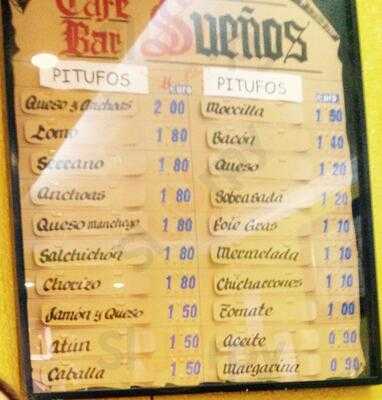 Café
Bar Sueños
PITUFOS Euro
Queso y Anchoas 2 00
Lomo 1 80
Serrano 1 80
Anchoas 1 80
Queso manchego 1 80
Salchichón 1 80
Chorizo 1 80
Jamón y Queso 1 50
Atún 1 50
Caballa 1 50
PITUFOS Euro
Morcilla 1 50
Bacón 1 40
Queso 1 20
Sobrasada 1 20
Foie Gras 1 10
Mermelada 1 10
Chicharrones 1 10
Tomate 1 00
Aceite 0 90
Margarina 0 90